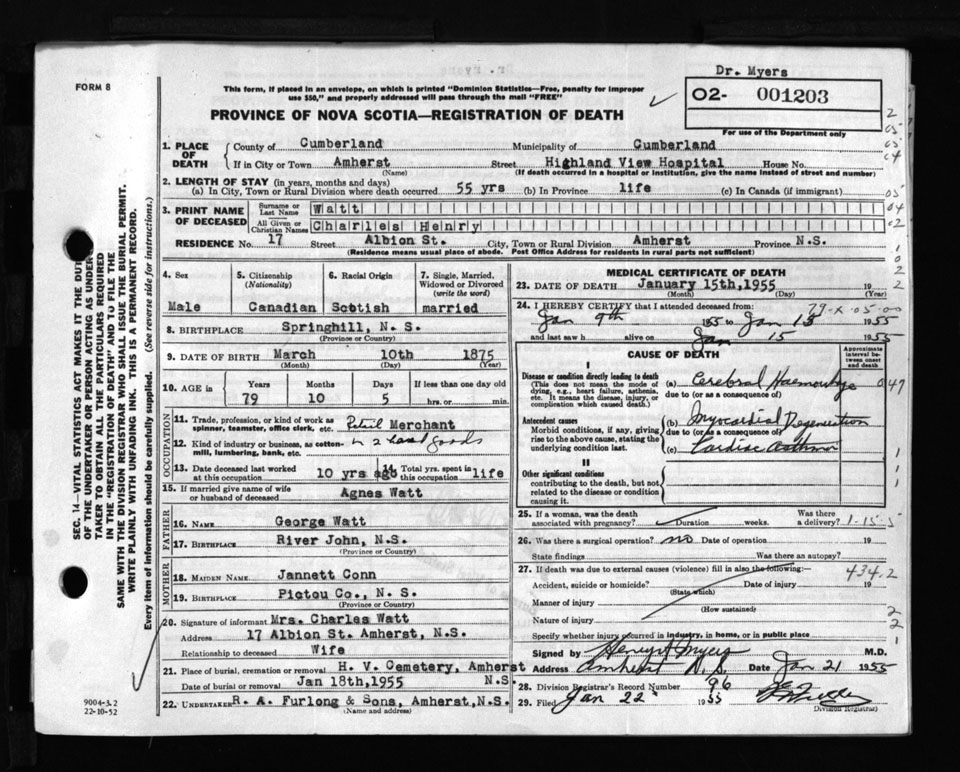 Dr. Myers
FORM 8
This form, if placed in an envelope, on which is printed "Dominion Statistics—Free, penalty for improper
use $50," and properly addressed will pass through the mail "FREE"
02- 001203
For use of the Department only
PROVINCE OF NOVA SCOTIA—REGISTRATION OF DEATH
1. PLACE OF DEATH
County of Cumberland Municipality of Cumberland
If in City or Town Amherst Street Highland View Hospital House No.
(Name) (If death occurred in a hospital or institution, give the name instead of street and number)
2. LENGTH OF STAY (in years, months and days)
(a) In City, Town or Rural Division where death occurred 55 yrs (b) In Province life (c) In Canada (if immigrant)
3. PRINT NAME OF DECEASED
Surname or Last Name Watt
All Given or Christian Names Charles Henry
RESIDENCE No. 17 Street Albion St. City, Town or Rural Division Amherst Province N.S.
(Residence means usual place of abode. Post Office Address for residents in rural parts not sufficient)
4. Sex
Male
5. Citizenship
(Nationality)
Canadian
6. Racial Origin
Scotish
7. Single, Married,
Widowed or Divorced
(write the word)
married
8. BIRTHPLACE Springhill, N. S.
(Province or Country)
9. DATE OF BIRTH March 10th 1875
(Month) (Day) (Year)
10. AGE in
Years Months Days If less than one day old
79 10 5 hrs. or min.
OCCUPATION
11. Trade, profession, or kind of work as
spinner, teamster, office clerk, etc. Retail Merchant
12. Kind of industry or business, as cotton-
mill, lumbering, bank, etc. goods
13. Date deceased last worked
at this occupation 10 yrs ago
14 Total yrs. spent in
this occupation life
15. If married give name of wife
or husband of deceased Agnes Watt
FATHER
16. NAME George Watt
17. BIRTHPLACE River John, N.S.
(Province or Country)
MOTHER
18. MAIDEN NAME Jannett Conn
19. BIRTHPLACE Pictou Co., N. S.
(Province or Country)
20. Signature of informant Mrs. Charles Watt
Address 17 Albion St. Amherst, N.S.
Relationship to deceased Wife
21. Place of burial, cremation or removal H. V. Cemetery, Amherst
N.S.
Date of burial or removal Jan 18th,1955
22. UNDERTAKER R. A. Furlong & Sons, Amherst,N.S.
(Name and address)
MEDICAL CERTIFICATE OF DEATH
23. DATE OF DEATH January 15th,1955 19
(Month) (Day) (Year)
24. I HEREBY CERTIFY that I attended deceased from:
Jan 9th 1955 to Jan 15 1955
and last saw h alive on Jan 15 1955
CAUSE OF DEATH
Approximate
interval be-
tween onset
and death
Disease or condition directly leading to death
(This does not mean the mode of
dying, e.g., heart failure, asthenia,
etc. It means the disease, injury, or
complication which caused death.)
(a) Cerebral Haemorrhage
due to (or as a consequence of)
Antecedent causes
Morbid conditions, if any, giving
rise to the above cause, stating the
underlying condition last.
(b) Myocardial Degeneration
due to (or as a consequence of)
(c) Cardiac Asthma
II
Other significant conditions
contributing to the death, but not
related to the disease or condition
causing it.
25. If a woman, was the death
associated with pregnancy? Duration weeks. Was there
a delivery?
1-15-5
26. Was there a surgical operation? no Date of operation 19
State findings Was there an autopsy?
27. If death was due to external causes (violence) fill in also the following:—
434.2
Accident, suicide or homicide? Date of injury 19
(State which)
Manner of injury
(How sustained)
Nature of injury
Specify whether injury occurred in industry, in home, or in public place
Signed by Henry Myers M.D.
Address Amherst N.S. Date Jan 21 1955
28. Division Registrar's Record Number 96
29. Filed Jan 22 1955
Division Registrar
SEC. 14—VITAL STATISTICS ACT MAKES IT THE DUTY
OF THE UNDERTAKER OR PERSON ACTING AS UNDER-
TAKER TO OBTAIN ALL THE PARTICULARS REQUIRED
IN THE "REGISTRATION OF DEATH" AND TO FILE THE
SAME WITH THE DIVISION REGISTRAR WHO SHALL ISSUE THE BURIAL PERMIT.
WRITE PLAINLY WITH UNFADING INK. THIS IS A PERMANENT RECORD.
Every item of information should be carefully supplied. (See reverse side for instructions.)
9004-3.2
22-10-52